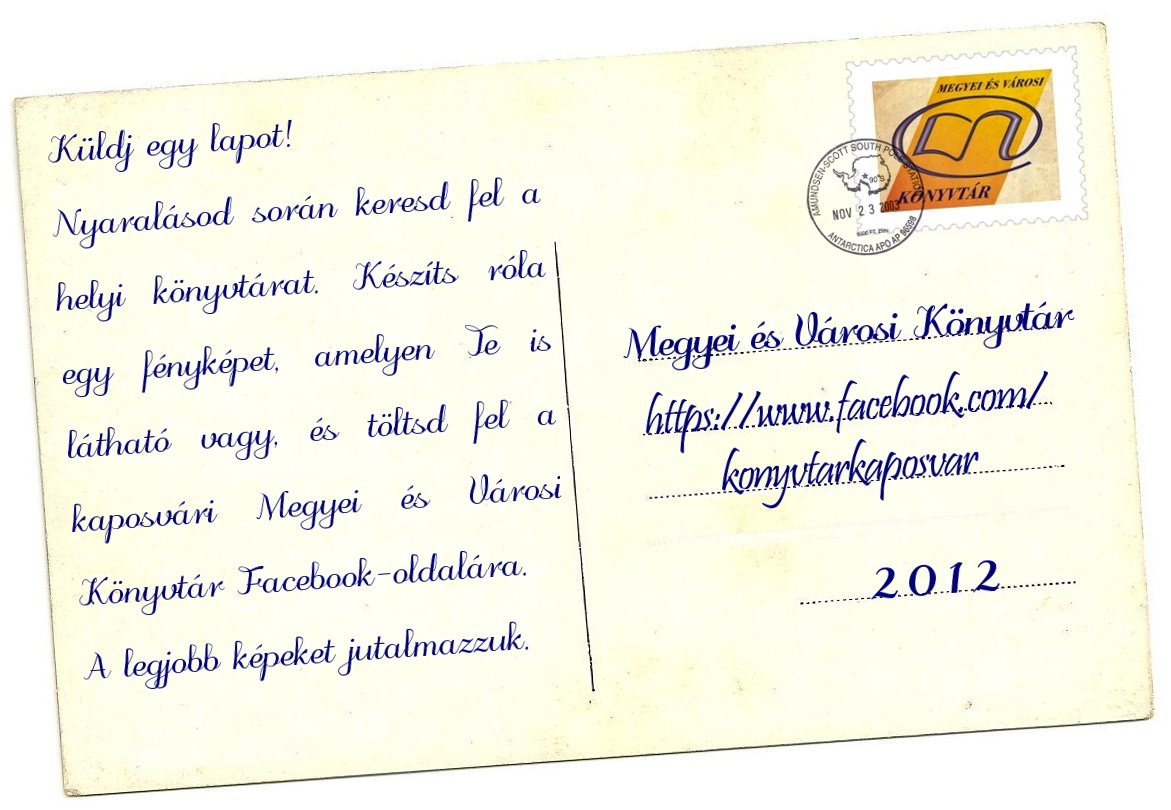 Küldj egy lapot!
Nyaralásod során keresd fel a
helyi könyvtárat. Készíts róla
egy fényképet, amelyen Te is
látható vagy, és töltsd fel a
kaposvári Megyei és Városi
Könyvtár Facebook-oldalára.
A legjobb képeket jutalmazzuk.
MEGYEI ÉS VÁROSI
KÖNYVTÁR
AMUNDSEN-SCOTT SOUTH POLE STATION
90°S
NOV 23 2003
ANTARCTICA APO AP 96598
Megyei és Városi Könyvtár
https://www.facebook.com/
konyvtarkaposvar
2012